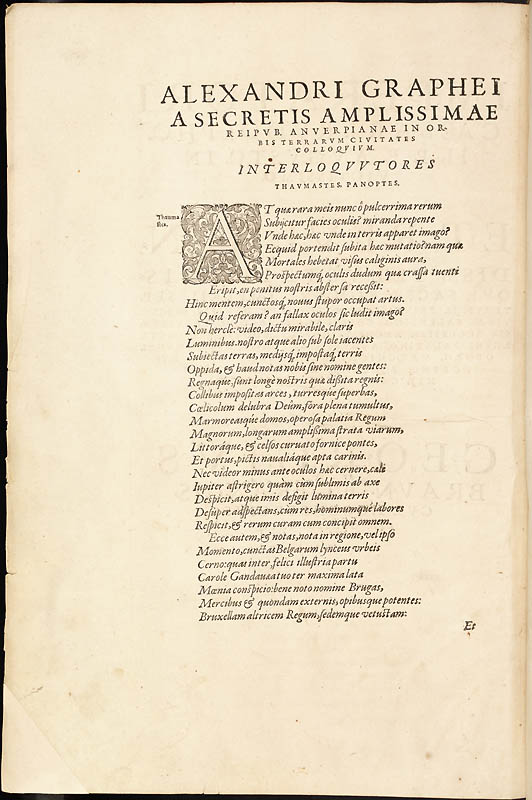 ALEXANDRI GRAPHEI
A SECRETIS AMPLISSIMAE
REIPVB. ANVERPIANAE IN OR-
BIS TERRARVM CIVITATES
COLLOQVIVM.
INTERLOQVVTORES
THAVMASTES. PANOPTES.
Thauma
stes.
AT quæ rara meis nunc ô pulcerrima rerum
Subijcitur facies oculis? miranda repente
Vnde hæc, hæc vnde in terris apparet imago?
Ecquid portendit subita hæc mutatio? nam quæ
Mortales hebetat visus caliginis aura,
Prospectumq́; oculis dudum quæ crassa tuenti
Eripit, en penitus nostris abstersa recessit:
Hinc mentem, cunctosq́; nouus stupor occupat artus.
Quid referam? an fallax oculos sic ludit imago?
Non hercle: video, dictu mirabile, claris
Luminibus nostro atque alio sub sole iacentes
Subiectas terras, medijsq́; impostaq́; terris
Oppida, & haud notas nobis sine nomine gentes:
Regnaque, sunt longè nostris quæ dissita regnis:
Collibus impositas arces, turresque superbas,
Cœlicolum delubra Deûm, fora plena tumultus,
Marmoreasque domos, operosa palatia Regum
Magnorum, longarum amplissima strata viarum,
Littoráque, & celsos curuato fornice pontes,
Et portus, pictis naualiáque apta carinis.
Nec videor minus ante oculos hæc cernere, cæli
Iupiter astrigero quàm cùm sublimis ab axe
Despicit, atque imis defigit lumina terris
Desuper adspectans, cùm res, hominumque labores
Respicit, & rerum curam cum concipit omnem.
Ecce autem, & notas, nota in regione, vel ipso
Momento, cunctas Belgarum lynceus vrbeis
Cerno: quas inter, felici illustria partu
Carole Gandauæa tuo ter maxima lata
Mœnia conspicio: bene noto nomine Brugas,
Mercibus & quondam externis, opibusque potentes:
Bruxellam altricem Regum, sedemque vetustam:
Et